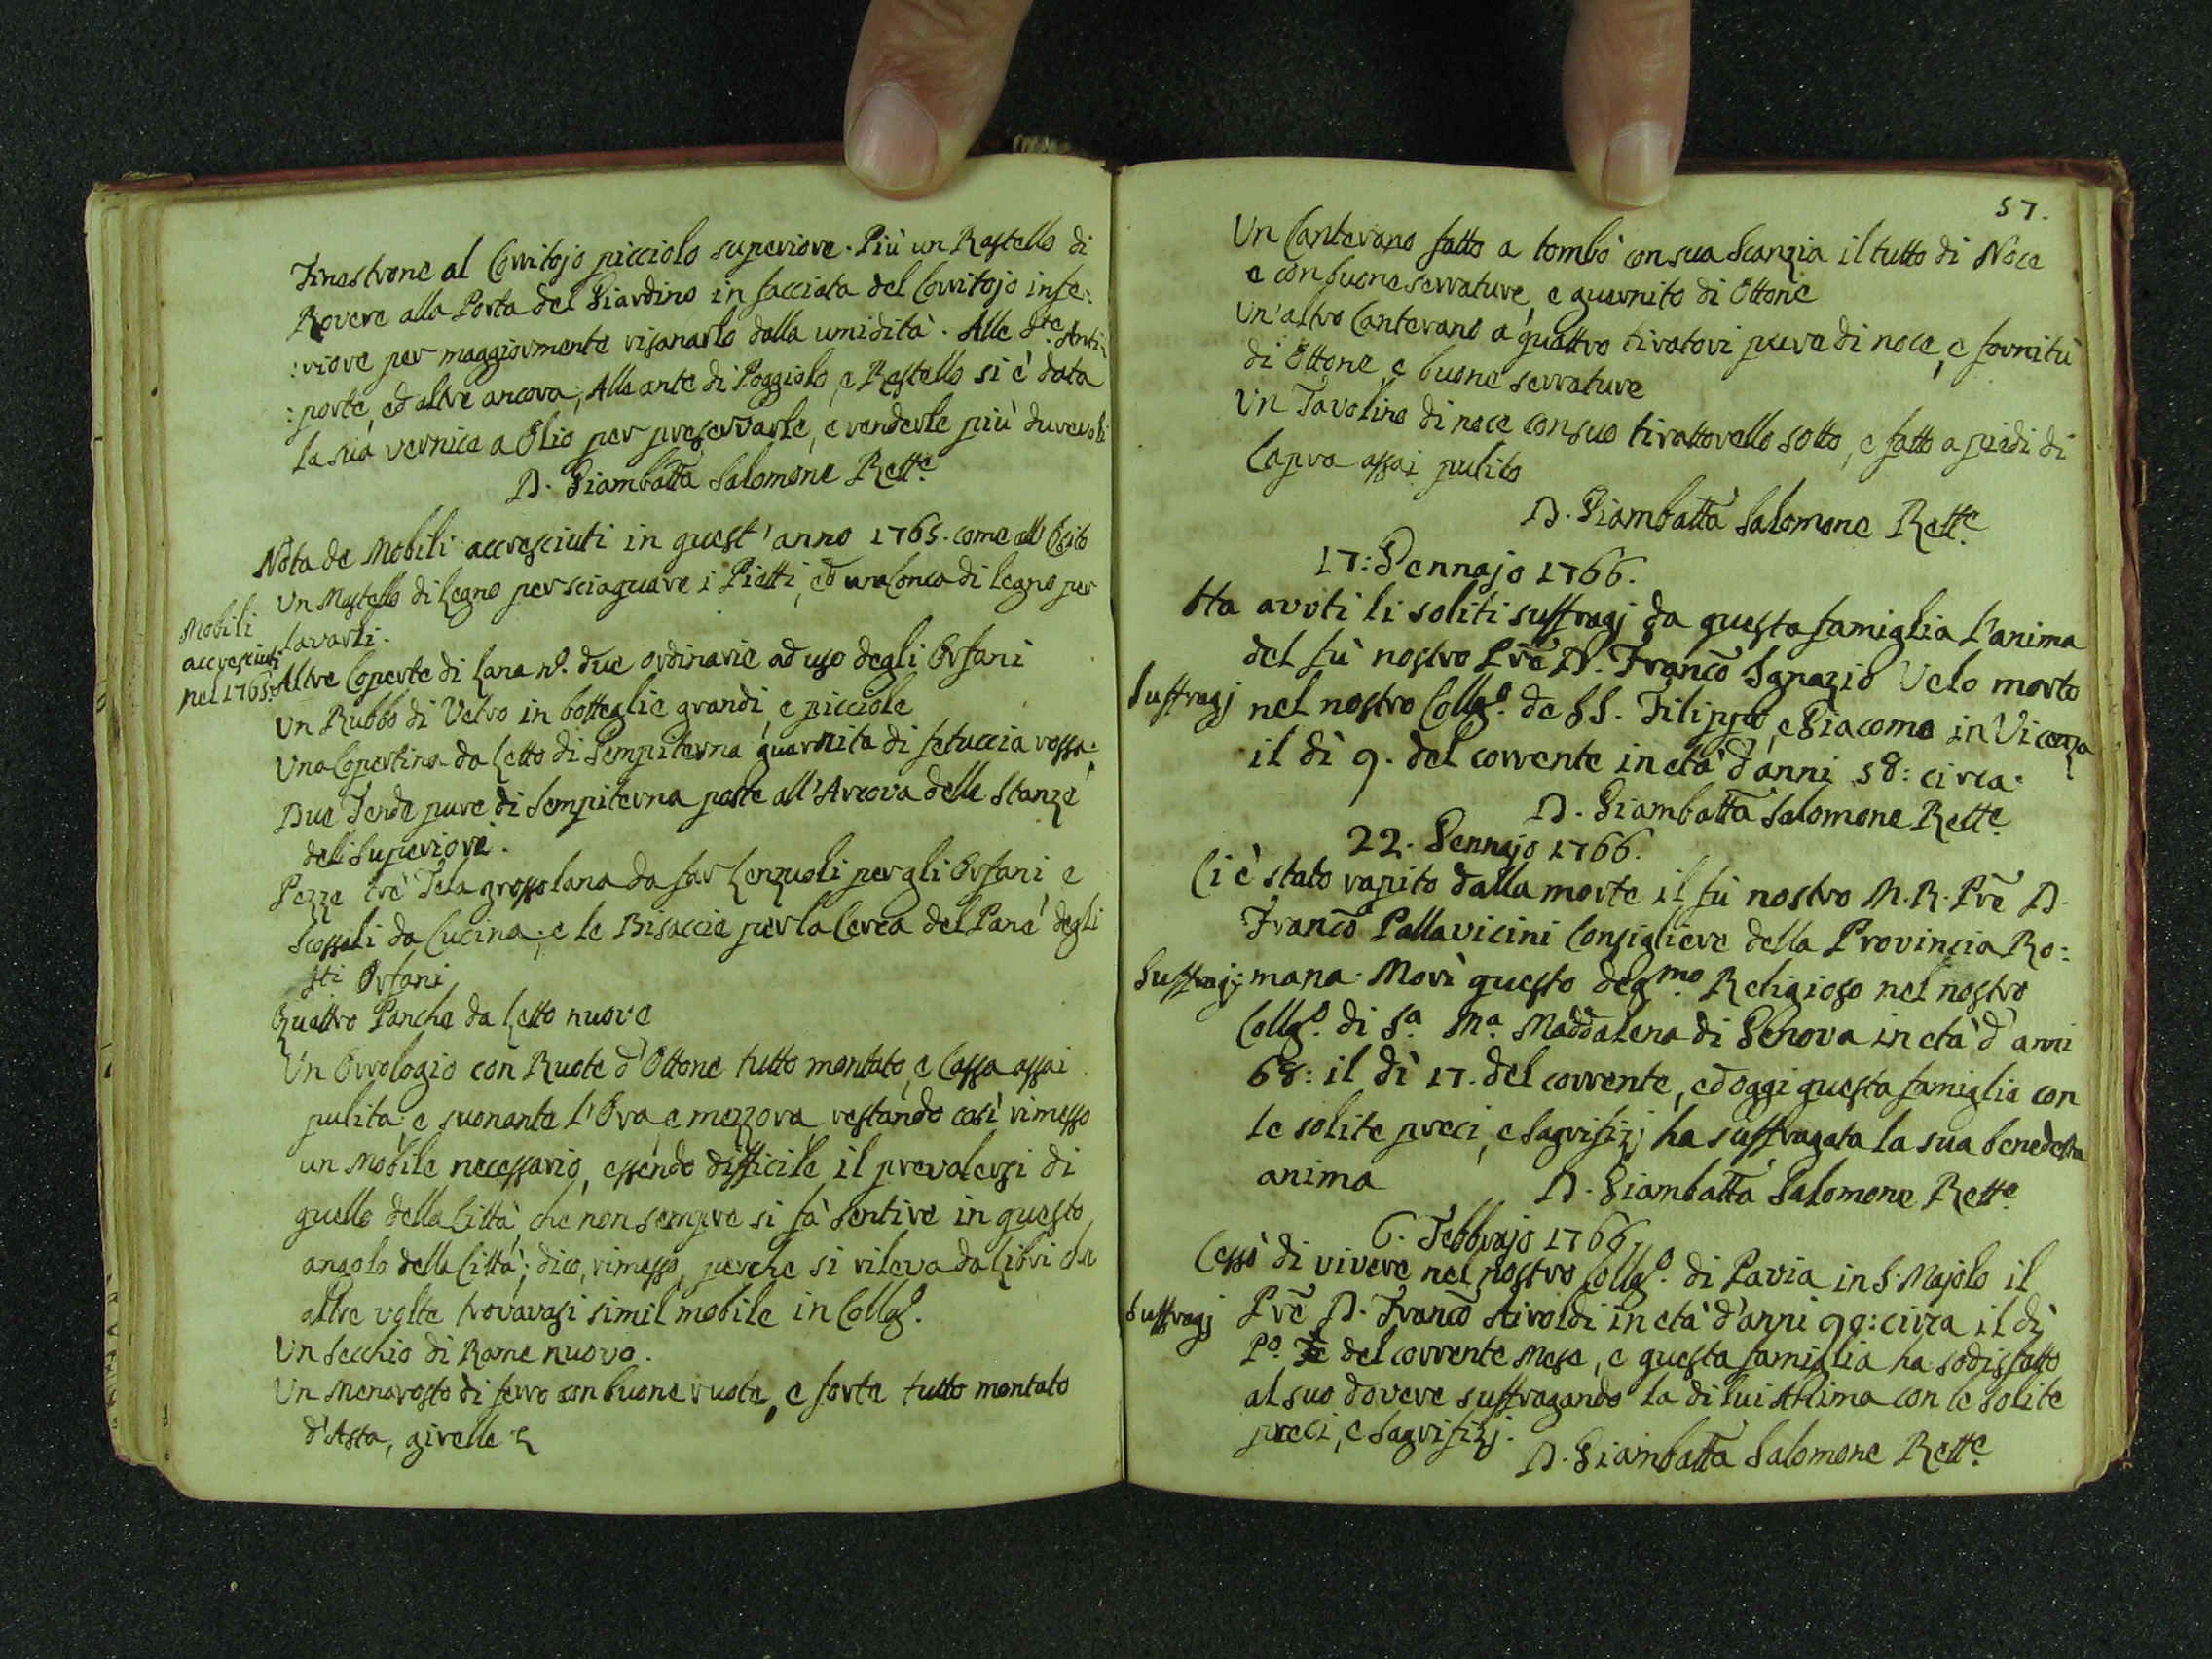 Finestrone al Corritojo picciolo superiore. Più un Rastello di
Rovere alla Porta del Giardino in facciata del Corritojo infe:
:riore per maggiormente risanarlo dalla umidità. Alle d.te Anti:
:porte, ed altre ancora; Alle ante di Poggiolo, e Rastello si è data
la sua vernice a Olio per preservarle, e renderle più durevoli
D. Giambatta Salomone Rett.e
Nota de Mobili accresciuti in quest'anno 1765. come all'Esito
Un Mastello di Legno per sciaquare i Piatti, ed una Conca di legno per
lavarli.
Mobili
accresciuti
nel 1765.
Altre Coperte di Lana n.o due ordinarie ad uso degli Orfani
Un Rubbo di Vetro in botteglie grandi, e picciole
Una Copertina da Letto di Sempiterna guarnita di fetuccia rossa:
Due Tende pure di Sempiterna poste all'Arcova delle Stanze
del Superiore.
Pezze trè Tela grossolana da far Lenzuoli per gli Orfani, e
Scossali da Cucina; e le Bisaccie per la Cerca del Pane degli
sti Orfani
Quattro Panche da Letto nuove
Un Orrologio con Ruote d'Ottone tutto montato, e Cassa assai
pulita: e suonante l'Ora, e mezzora restando così rimesso
un mobile necessario, essendo difficile il prevalersi di
quello della Città, che non sempre si fà sentire in questo
angolo della Città; dico, rimesso, perche si rileva da Libri che
altre volte trovavasi simil mobile in Collg.o
Un Secchio di Rame nuovo.
Un Menarosto di ferro con buone ruote, e forte tutto montato
d'Asta, girelle
57.
Un Canterano fatto a tombò con sua Scanzia il tutto di Noce
e con buone serrature, e guernito di Ottone
Un'altro Canterano a quattro tiratori pure di noce, e fornitù
di Ottone, e buone serrature
Un Tavolino di noce con suo tirattorello sotto, e fatto a piedi di
Capra assai pulito
D. Giambatta Salomone Rett.e
17: Gennajo 1766.
Ha avuti li soliti suffragj da questa famiglia l'anima
del fù nostro Prē D. Francō Ignazio Velo morto
Suffragj
nel nostro Collg.o de SS. Filippo, e Giacomo in Vicenza
il dì 9. del corrente in età d'anni 58: circa.
D. Giambatta Salomone Rett.e
22. Gennajo 1766.
Ci è stato rapito dalla morte il fù nostro M. R. Prē D.
Francō Pallavicini Consigliere della Provincia Ro:
Suffragj
:mana. Morì questo deg.mo Religioso nel nostro
Collg.o di S.a M.a Maddalena di Genova in età d'anni
68: il dì 17. del corrente, ed oggi questa famiglia con
le solite preci, e Sagrifizj ha suffragata la sua benedetta
anima
D. Giambatta Salomone Rett.e
6. Febbrajo 1766.
Cessò di vivere nel nostro Collg.o di Pavia in S. Majolo il
Suffragj
Prē D. Francō Airoldi in età d'anni 99: circa il dì
P.o del corrente Mese, e questa famiglia ha sodisfatto
al suo dovere suffragando la di lui Anima con le solite
preci, e Sagrifizj.
D. Giambatta Salomone Rett.e